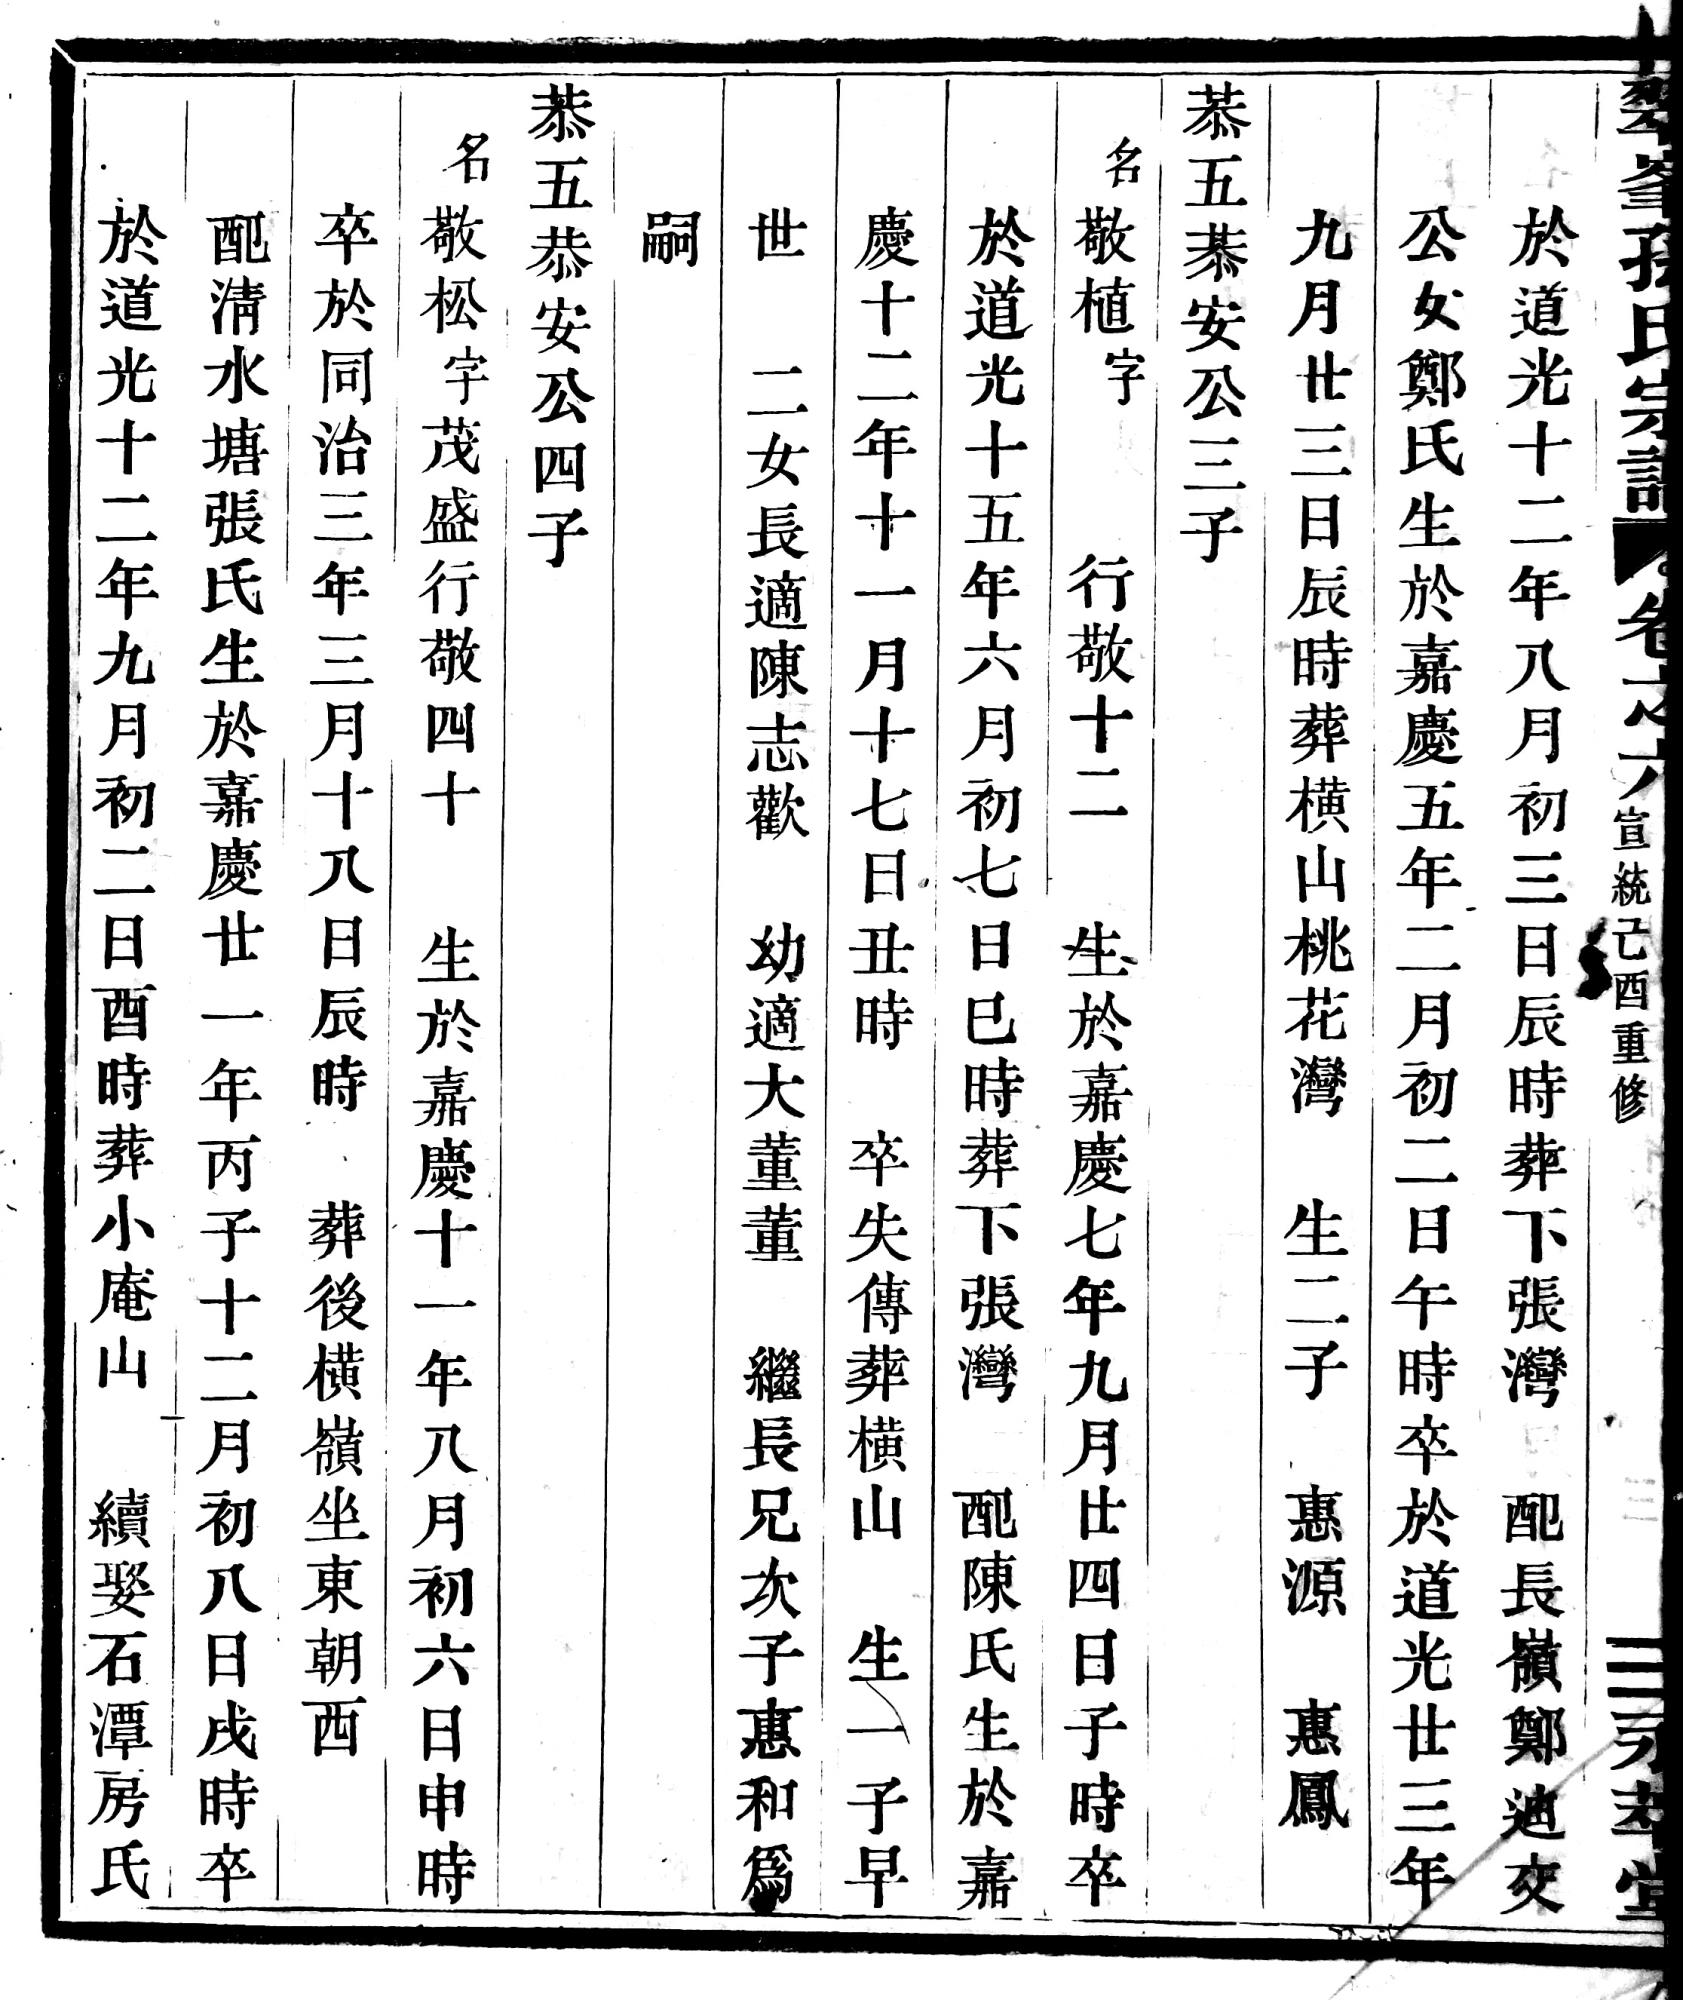 峯孫氏宗譜 卷之六 宣統己酉重修 三 堂
於道光十二年八月初三日辰時葬下張灣 配長嶺鄭迪交
公女鄭氏生於嘉慶五年二月初二日午時卒於道光廿三年
九月廿三日辰時葬橫山桃花灣 生二子 惠源 惠鳳
恭五恭安公三子
名敬植字 行敬十二 生於嘉慶七年九月廿四日子時卒
於道光十五年六月初七日巳時葬下張灣 配陳氏生於嘉
慶十二年十一月十七日丑時 卒失傳葬橫山 生一子早
世 二女長適陳志歡 幼適大董董 繼長兄次子惠和爲
嗣
恭五恭安公四子
名敬松字茂盛行敬四十 生於嘉慶十一年八月初六日申時
卒於同治三年三月十八日辰時 葬後橫嶺坐東朝西
配淸水塘張氏生於嘉慶廿一年丙子十二月初八日戌時卒
於道光十二年九月初二日酉時葬小庵山 續娶石潭房氏